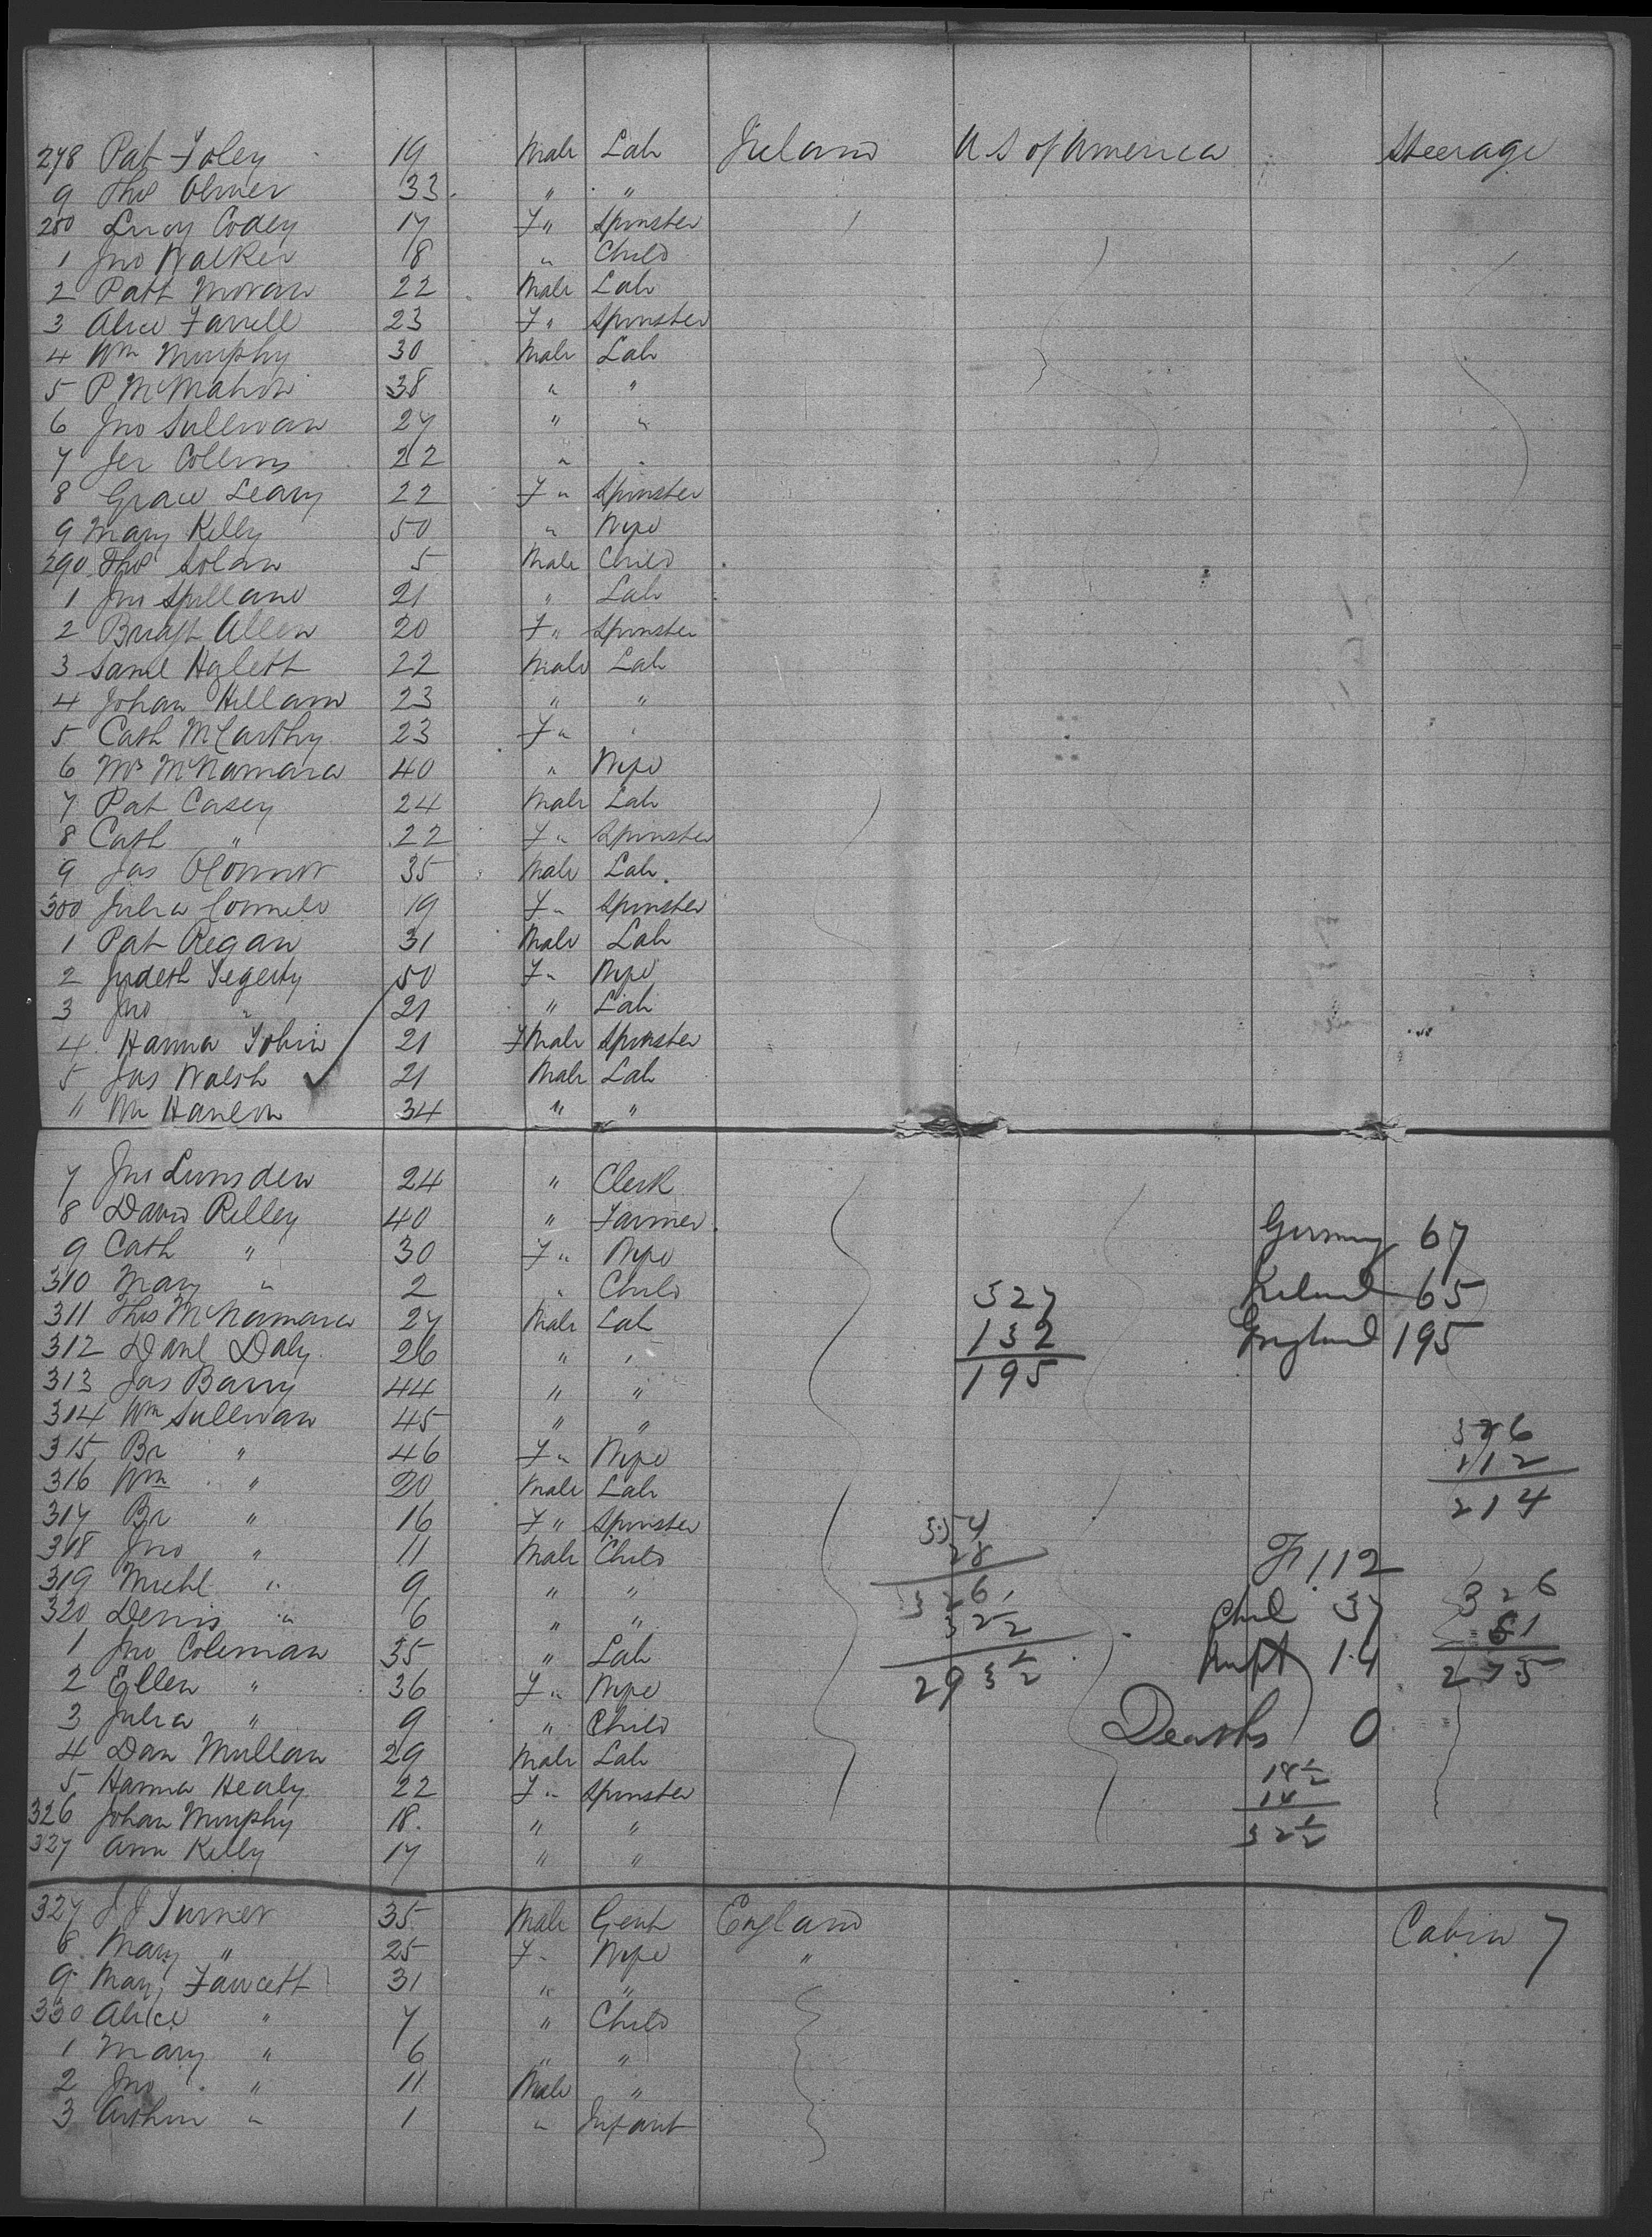 278 Pat Foley 19 Male Lab Ireland U S of America Steerage
9 Thos Oliver 33 " "
280 Lucy Codey 17 F " Spinster
1 Jno Walker 8 " Child
2 Patt Moran 22 Male Lab
3 Alice Farrell 23 F " Spinster
4 Wm Murphy 30 Male Lab
5 P McMahon 38 " "
6 Jno Sullivan 27 " "
7 Jer Collins 22 " "
8 Grace Leary 22 F " Spinster
9 Mary Kelly 50 " Wife
290 Thos Solan 5 Male Child
1 Jno Spillane 21 " Lab
2 Bridgt Allen 20 F " Spinster
3 Saml Hazlett 22 Male Lab
4 Johan 23 " "
5 Cath McCarthy 23 F " "
6 Mrs McNamara 40 " Wife
7 Pat Casey 24 Male Lab
8 Cath " 22 F " Spinster
9 Jas OConnor 35 Male Lab
300 Julia Connell 19 F " Spinster
1 Pat Regan 31 Male Lab
2 Judeth Fegerty 50 F " Wife
3 Jno " 21 " Lab
4 Hanna Tobin 21 FMale Spinster
5 Jas Walsh 21 Male Lab
" Wm Hanlon 34 " "
7 Jno Lumsden 24 " Clerk
8 David Relley 40 " Farmer
Germany 67
9 Cath " 30 F " Wife
310 Mary " 2 " Child 327 Ireland 65
311 Thos McNamara 27 Male Lab 132 England 195
312 Danl Daly 26 " " 195
313 Jas Barry 44 " "
314 Wm Sullivan 45 " " 326
315 Br " 46 F " Wife 112
316 Wm " 20 Male Lab 214
317 Br " 16 F " Spinster 354
318 Jno " 11 Male Child 28 F 112
319 Michl " 9 " " 326 326
320 Denis " 6 " " 32½ Chil 37 51
1 Jno Coleman 35 " Lab Inft 14 275
2 Ellen " 36 F " Wife 293½
3 Julia " 9 " Child Deaths 0
4 Dan Mullan 29 Male Lab 18½
5 Hanna Healy 22 F " Spinster 14
326 Johan Murphy 18 " " 32½
327 Ann Kelly 17 " "
327 J J Turner 35 Male Gent England Cabin 7
8 Mary " 25 F " Wife "
9 Mary Fawcett 31 " "
330 Alice " 7 " Child
1 Mary " 6 " "
2 Jno " 11 Male "
3 Arthur " 1 " Infant